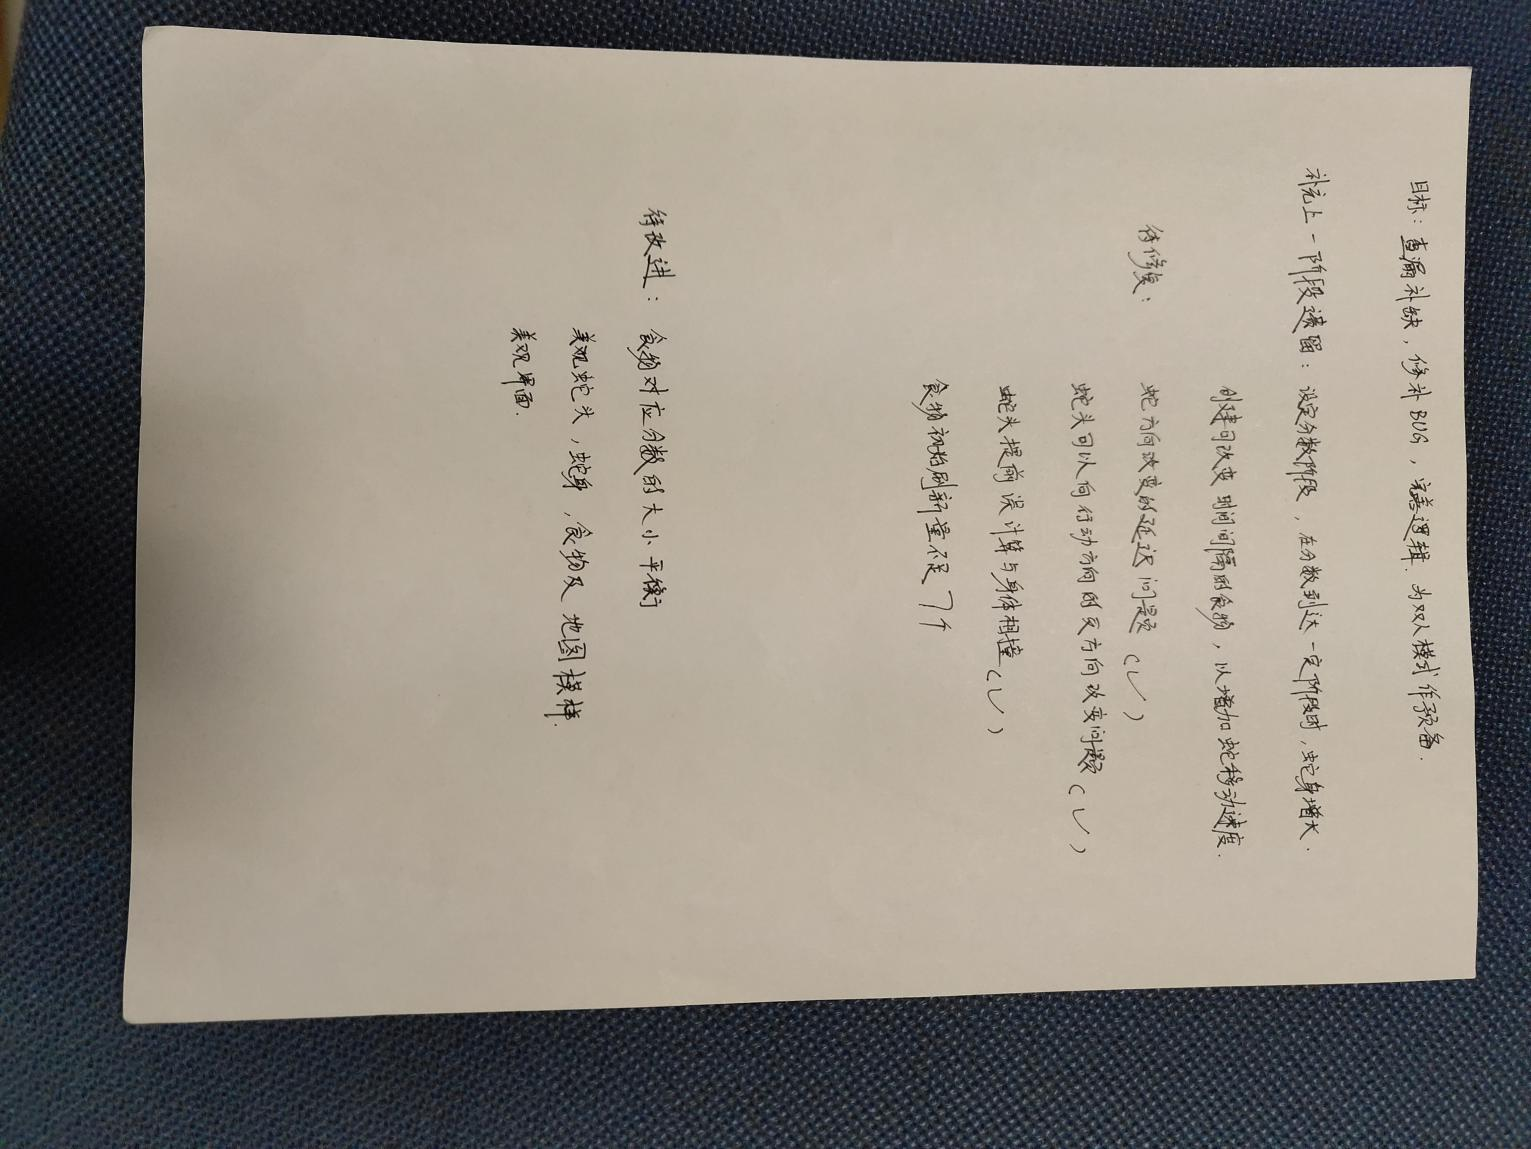 目标：查漏补缺，修补BUG，完善逻辑．为双人模式作预备．
补充上一阶段遗留：设定分数阶段，在分数到达一定阶段时，蛇身增大．
创建可改变时间间隔的食物，以增加蛇移动速度．
待修复：蛇方向改变的延迟问题（✓）
蛇头可以向行动方向的反方向改变问题（✓）
蛇头提前误计算与身体相撞（✓）
食物初始刷新量不足7个
待改进：食物对应分数的大小平衡
美观蛇头，蛇身，食物及地图模样．
美观界面．